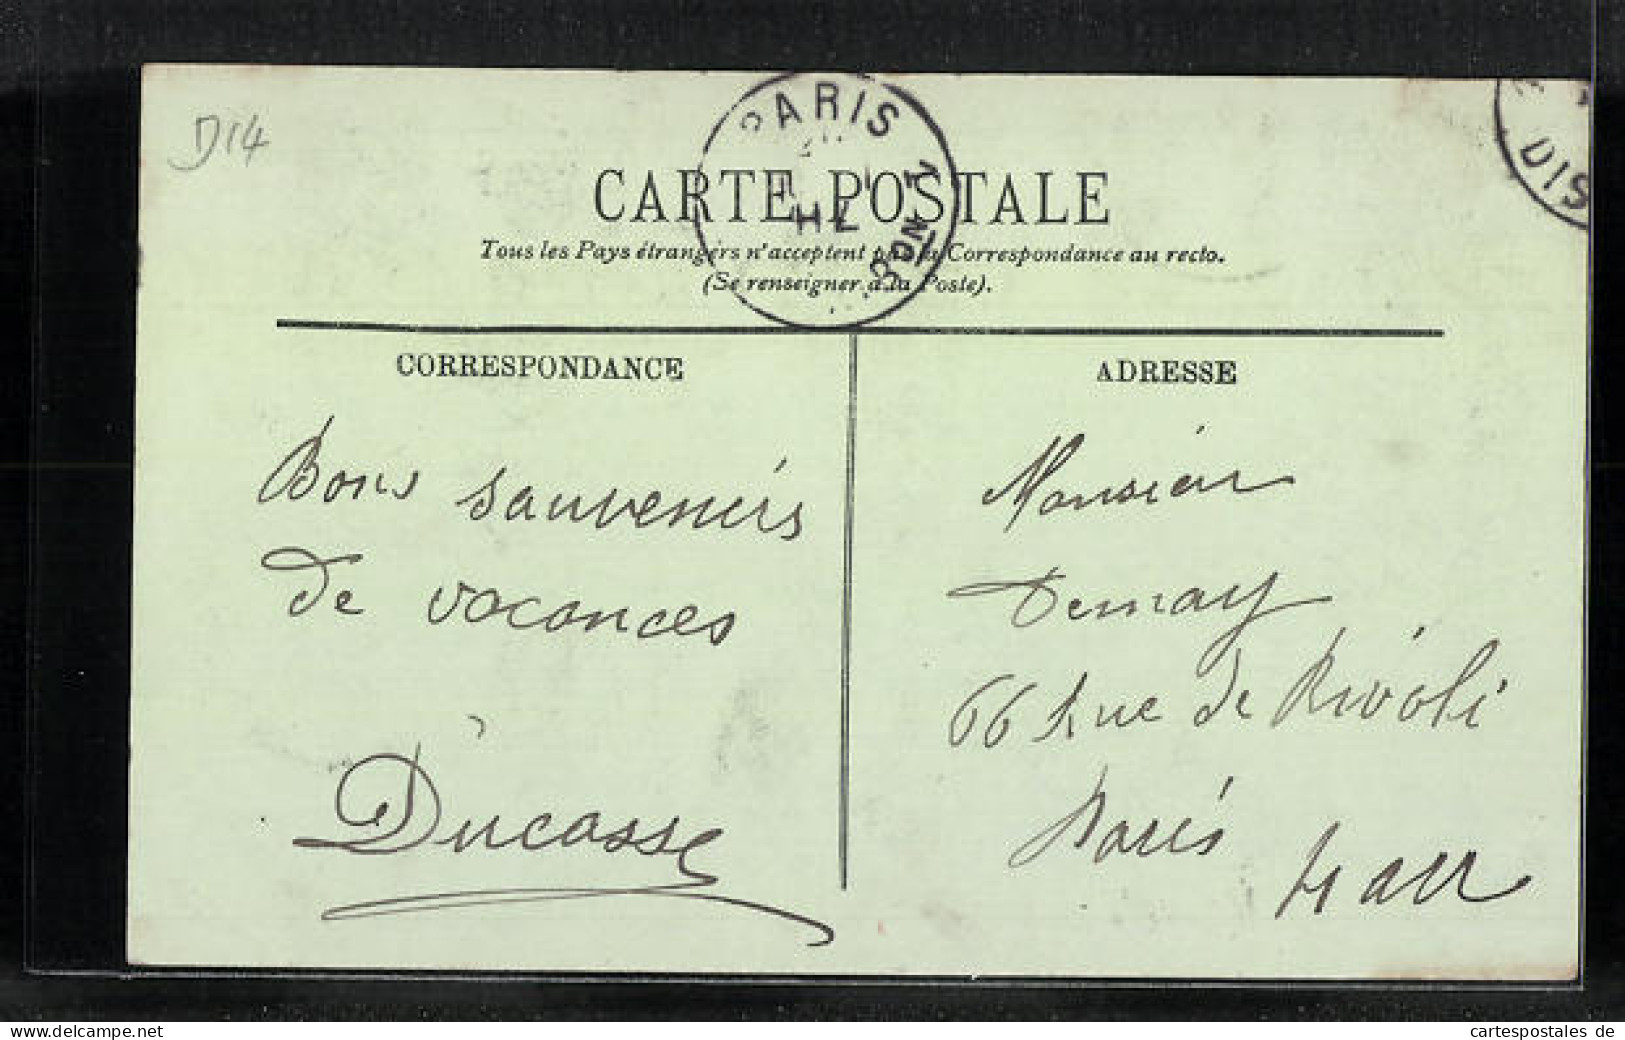 D14
PARIS
DIS
CARTE POSTALE
Tous les Pays étrangers n'acceptent pas la Correspondance au recto.
(Se renseigner à la Poste).
CORRESPONDANCE
ADRESSE
Bons souvenirs
de vacances
Ducasse
Monsieur
Demay
66 rue de Rivoli
Paris
cartespostales de